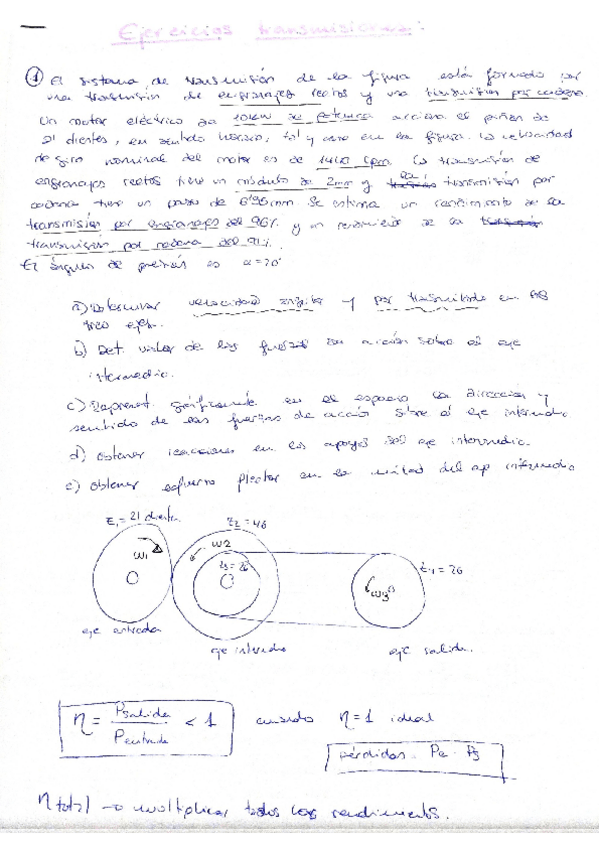 Ejercicios transmisiones:
① El sistema de transmisión de la figura está formado por
una transmisión de engranajes rectos y una transmisión por cadena
Un motor eléctrico de 10kW de potencia acciona el piñón de
21 dientes, en sentido horario, tal y como en la figura. La velocidad
de giro nominal del motor es de rpm. La transmisión de
engranajes rectos tiene un módulo de 2mm y la transmisión por
cadena tiene un paso de mm. Se estima un rendimiento de la
transmisión por engranajes del 96% y un rendimiento de la
transmisión por cadena del 91%.
El ángulo de presión es α=20°
a) Determinar velocidad angular y par transmitido en los
tres ejes.
b) Det. valor de las fuerzas en acción sobre el eje
intermedio.
c) Represent. gráficamente en el espacio la dirección y
sentido de las fuerzas de acción sobre el eje intermedio
d) obtener reacciones en los apoyos del eje intermedio
e) obtener esfuerzo flector en la mitad del eje intermedio
Z₁ = 21 dientes
Z₂ = 46
ω1
ω2
Z₄ = 26
ω3
eje entrada
eje intermedio
eje salida.
η = Psalida / Pentrada < 1
cuando η=1 ideal
pérdidas Pe - Ps
η total → multiplicar todos los rendimientos.